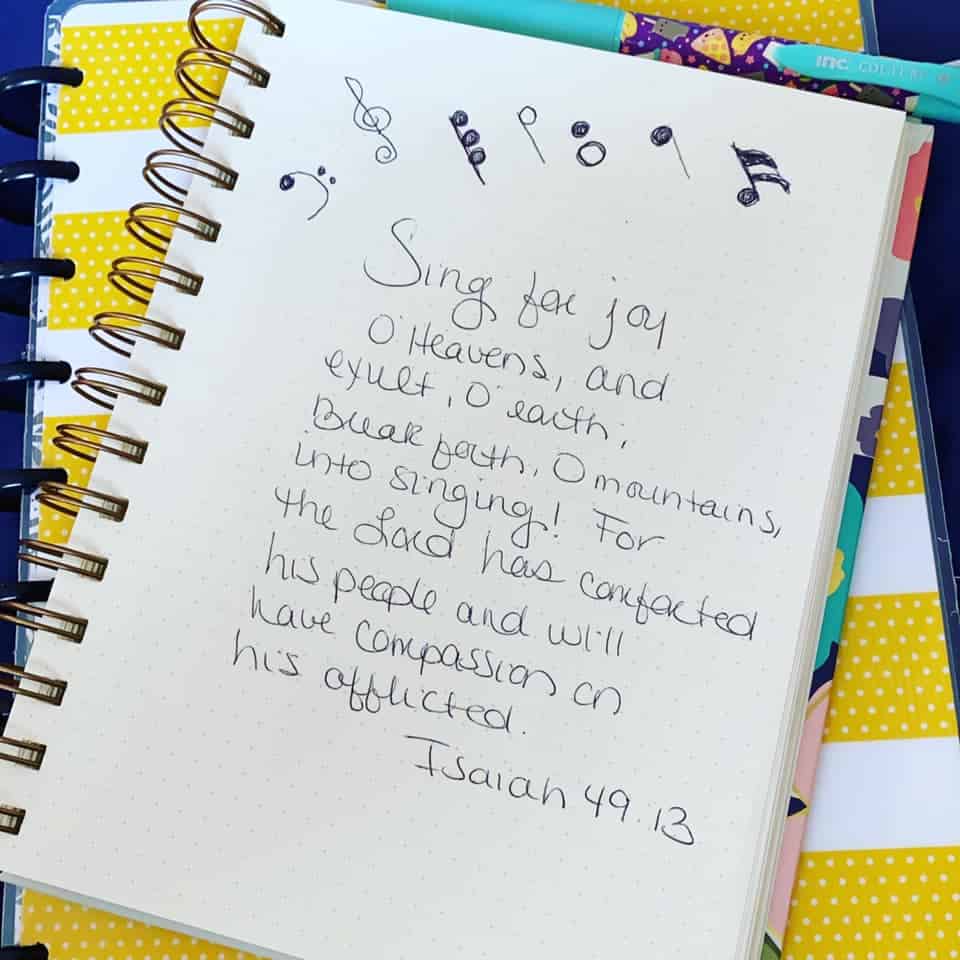 inc. COUTURE
Sing for joy
O'Heavens, and
exult, O'earth;
Break forth, O mountains,
into singing! For
the Lord has comforted
his people and will
have compassion on
his afflicted.
Isaiah 49:13